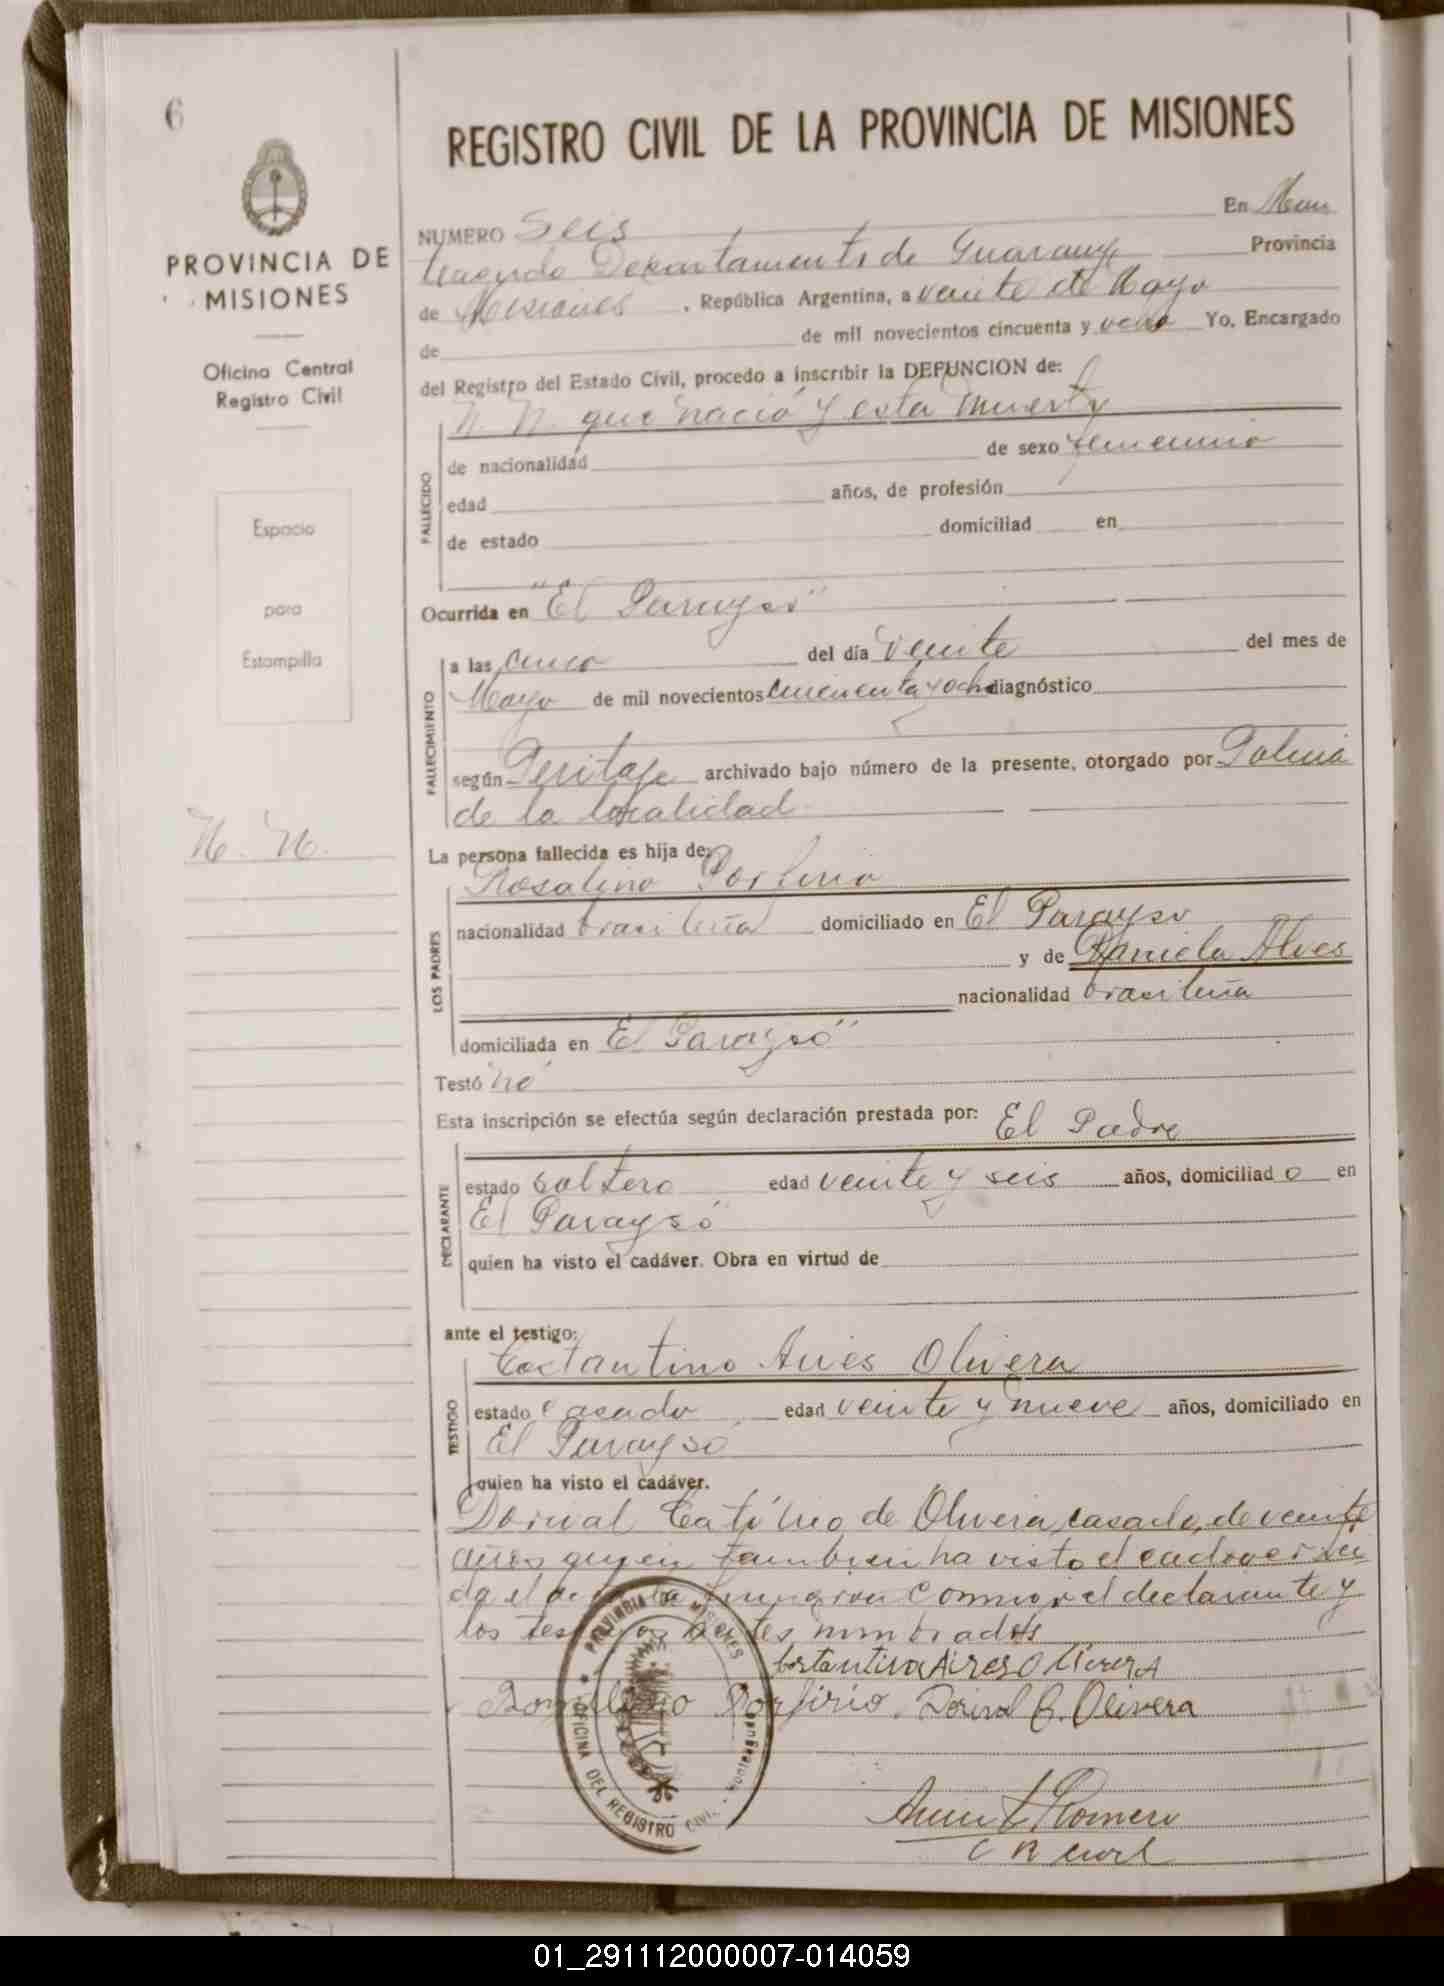 6
REGISTRO CIVIL DE LA PROVINCIA DE MISIONES
PROVINCIA DE
MISIONES
Oficina Central
Registro Civil
Espacio
para
Estampilla
N. N.
NUMERO Seis En
Departamento de Guarany Provincia
de Misiones , República Argentina, a veinte de Mayo
de de mil novecientos cincuenta y ocho Yo, Encargado
del Registro del Estado Civil, procedo a inscribir la DEFUNCION de:
FALLECIDO
N. N. que nació y esta muerta
de nacionalidad de sexo femenino
edad años, de profesión
de estado domiciliad en
Ocurrida en "El Parayso"
FALLECIMIENTO
a las cinco del día veinte del mes de
Mayo de mil novecientos cincuenta y ocho diagnóstico
según Peritaje archivado bajo número de la presente, otorgado por Policia
de la localidad
La persona fallecida es hija de:
LOS PADRES
Rosalino Porfirio
nacionalidad brasileña domiciliado en El Parayso
y de Daniela Alves
nacionalidad brasileña
domiciliada en El Parayso"
Testó "no"
Esta inscripción se efectúa según declaración prestada por: El Padre
DECLARANTE
estado soltero edad veinte y seis años, domiciliad o en
El Parayso
quien ha visto el cadáver. Obra en virtud de
ante el testigo:
TESTIGO
Costantino Aires Olivera
estado casado edad veinte y nueve años, domiciliado en
El Parayso
quien ha visto el cadáver.
Dorival de Olivera, casado, de veinte
años quyen tambien ha visto el cadaver
da el conmigo el declarante y
los nombrados
Costantino Aires Olivera
Porfirio. Dorival C. Olivera
PROVINCIA DE MISIONES
OFICINA DEL REGISTRO CIVIL
Romero
C R Civil
01_291112000007-014059